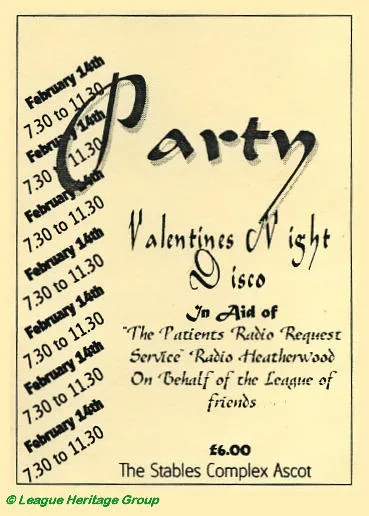 February 14th
7.30 to 11.30
February 14th
7.30 to 11.30
February 14th
7.30 to 11.30
February 14th
7.30 to 11.30
February 14th
7.30 to 11.30
February 14th
7.30 to 11.30
February 14th
7.30 to 11.30
Party
Valentines Night
Disco
In Aid of
"The Patients Radio Request
Service" Radio Heatherwood
On Behalf of the League of
friends
£6.00
The Stables Complex Ascot
© League Heritage Group